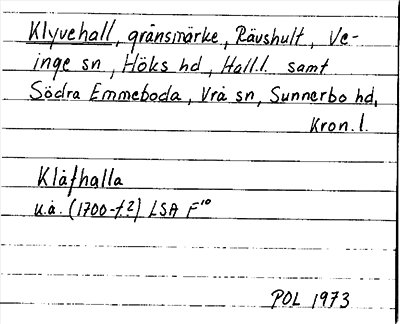 Klyvehall, gränsmärke, Rävshult, Ve-
inge sn, Höks hd, Hall.l. samt
Södra Emmeboda, Vrå sn, Sunnerbo hd,
Kron.l.
Klåfhalla
u.å. (1700-t.?) LSA F¹⁰
POL 1973